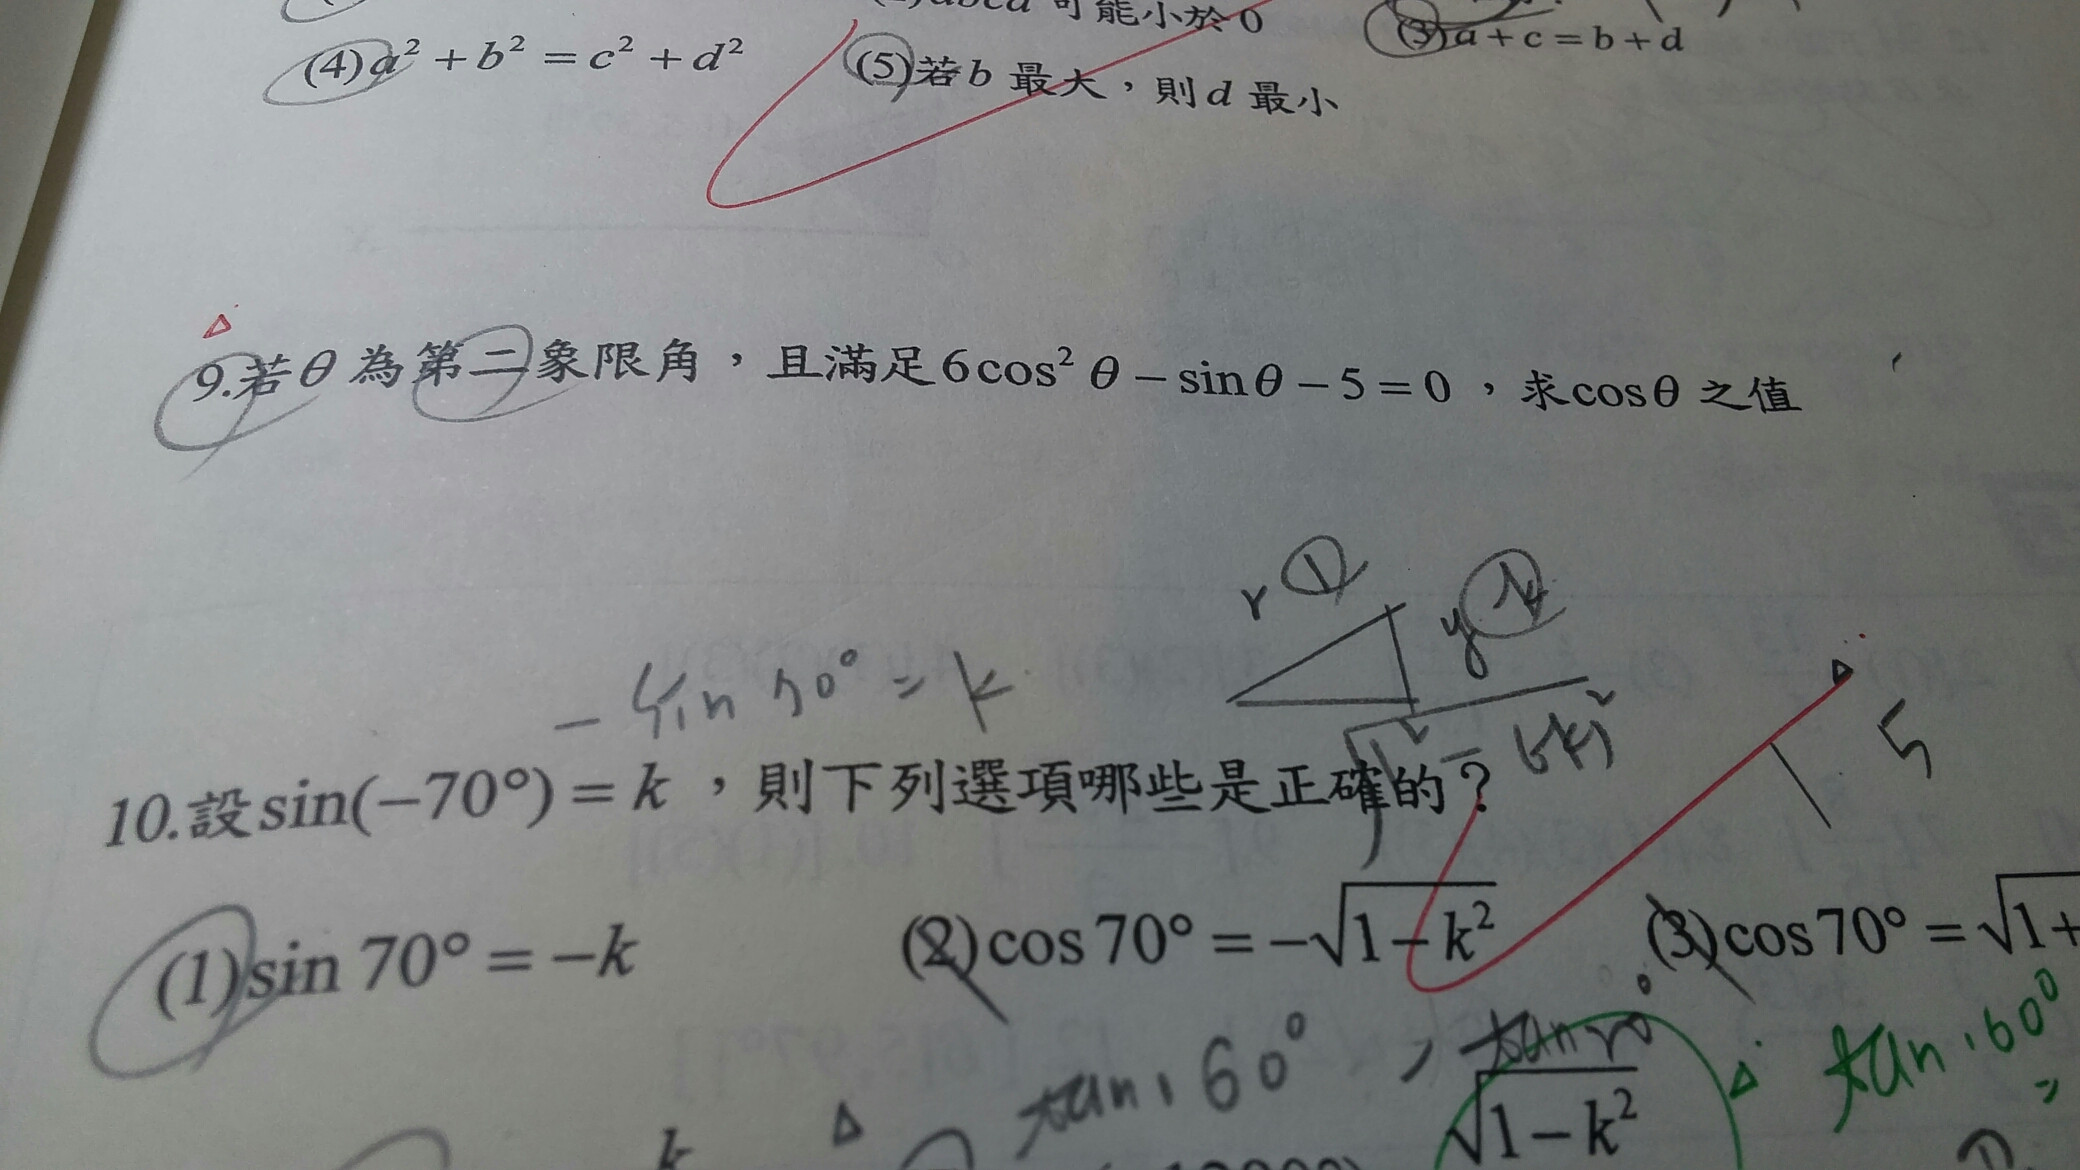 可能小於0
(3)a+c=b+d
(4)a²+b²=c²+d²
(5)若b最大，則d最小
9.若θ為第二象限角，且滿足6cos²θ-sinθ-5=0，求cosθ之值
r 1
y
-sin70°=k
5
10.設sin(-70°)=k，則下列選項哪些是正確的？
(1)sin70°=-k
(2)cos70°=-√1-k²
(3)cos70°=√1+
tan160°
tan160°
=
k
√1-k²